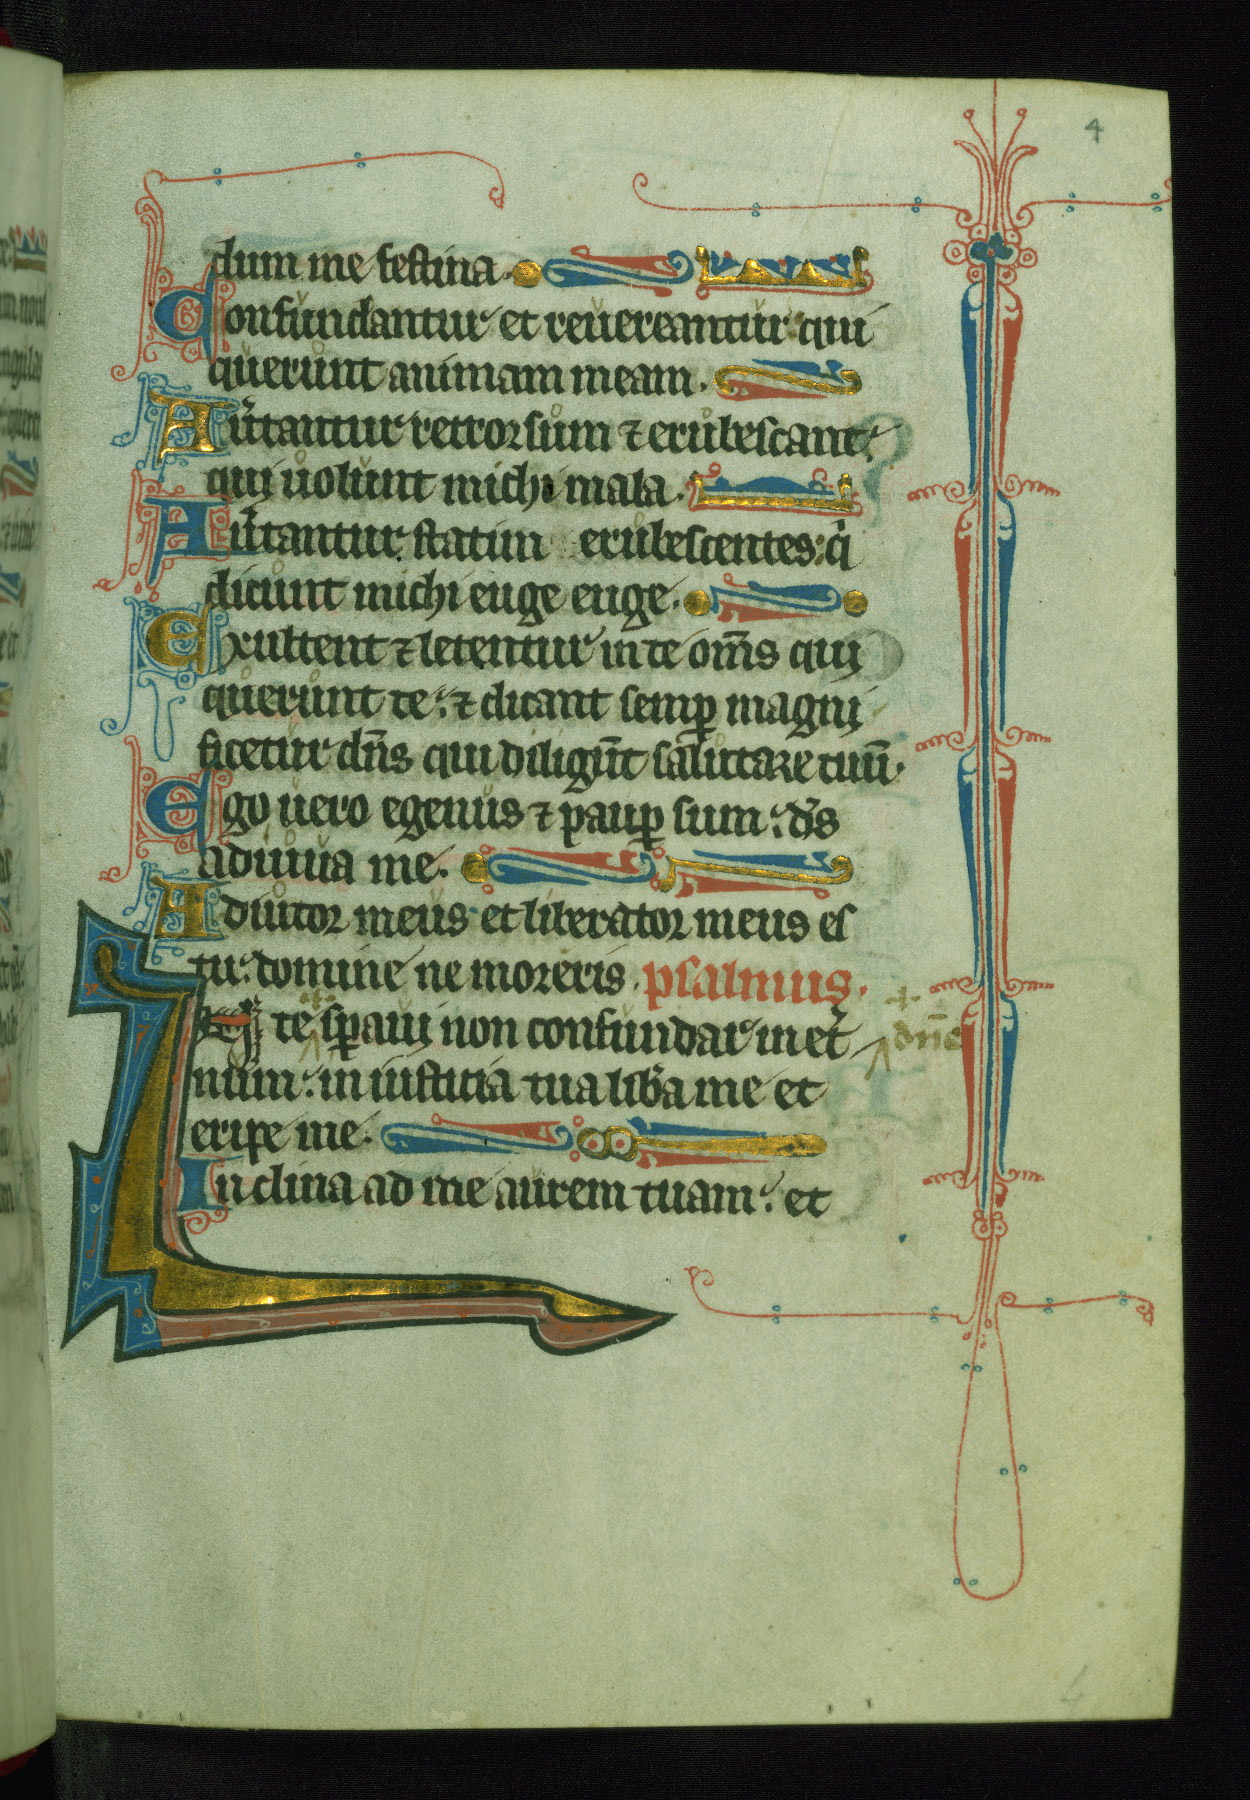 4
dum me festina.
Confundantur et reuereantur qui
querunt animam meam.
Aũtantur retrorsum ⁊ erubescant:
qui uolunt michi mala.
Aũtantur statim erubescentes: qi
dicunt michi euge euge.
Exultent ⁊ letentur in te om̄s qui
querunt te: ⁊ dicant semꝑ magni
ficetur dn̄s qui diligūt salutare tuū.
Ego uero egenus ⁊ pauꝑ sum: ds̄
adiuua me.
Adiutor meus et liberator meus es
tu: domine ne moreris. psalmus.
te sꝑaui non confundar in et̉ dn̄e
num: in iusticia tua lib̉a me et
eripe me.
Inclina ad me aurem tuam: et